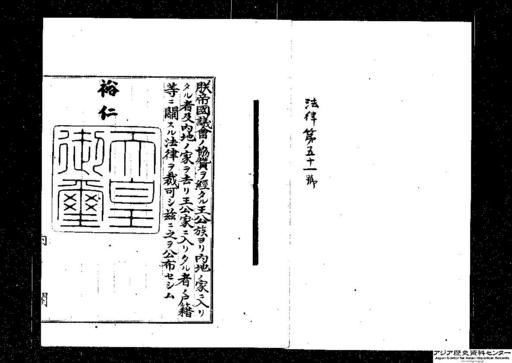 法律第五十一號
朕帝國議會ノ協賛ヲ經タル王公族ヨリ內地ノ家ニ入リ
タル者及內地ノ家ヲ去リ王公家ニ入リタル者ノ戶籍
等ニ關スル法律ヲ裁可シ玆ニ之ヲ公布セシム
裕仁
天皇
御璽
內閣
アジア歴史資料センター
Japan Center for Asian Historical Records